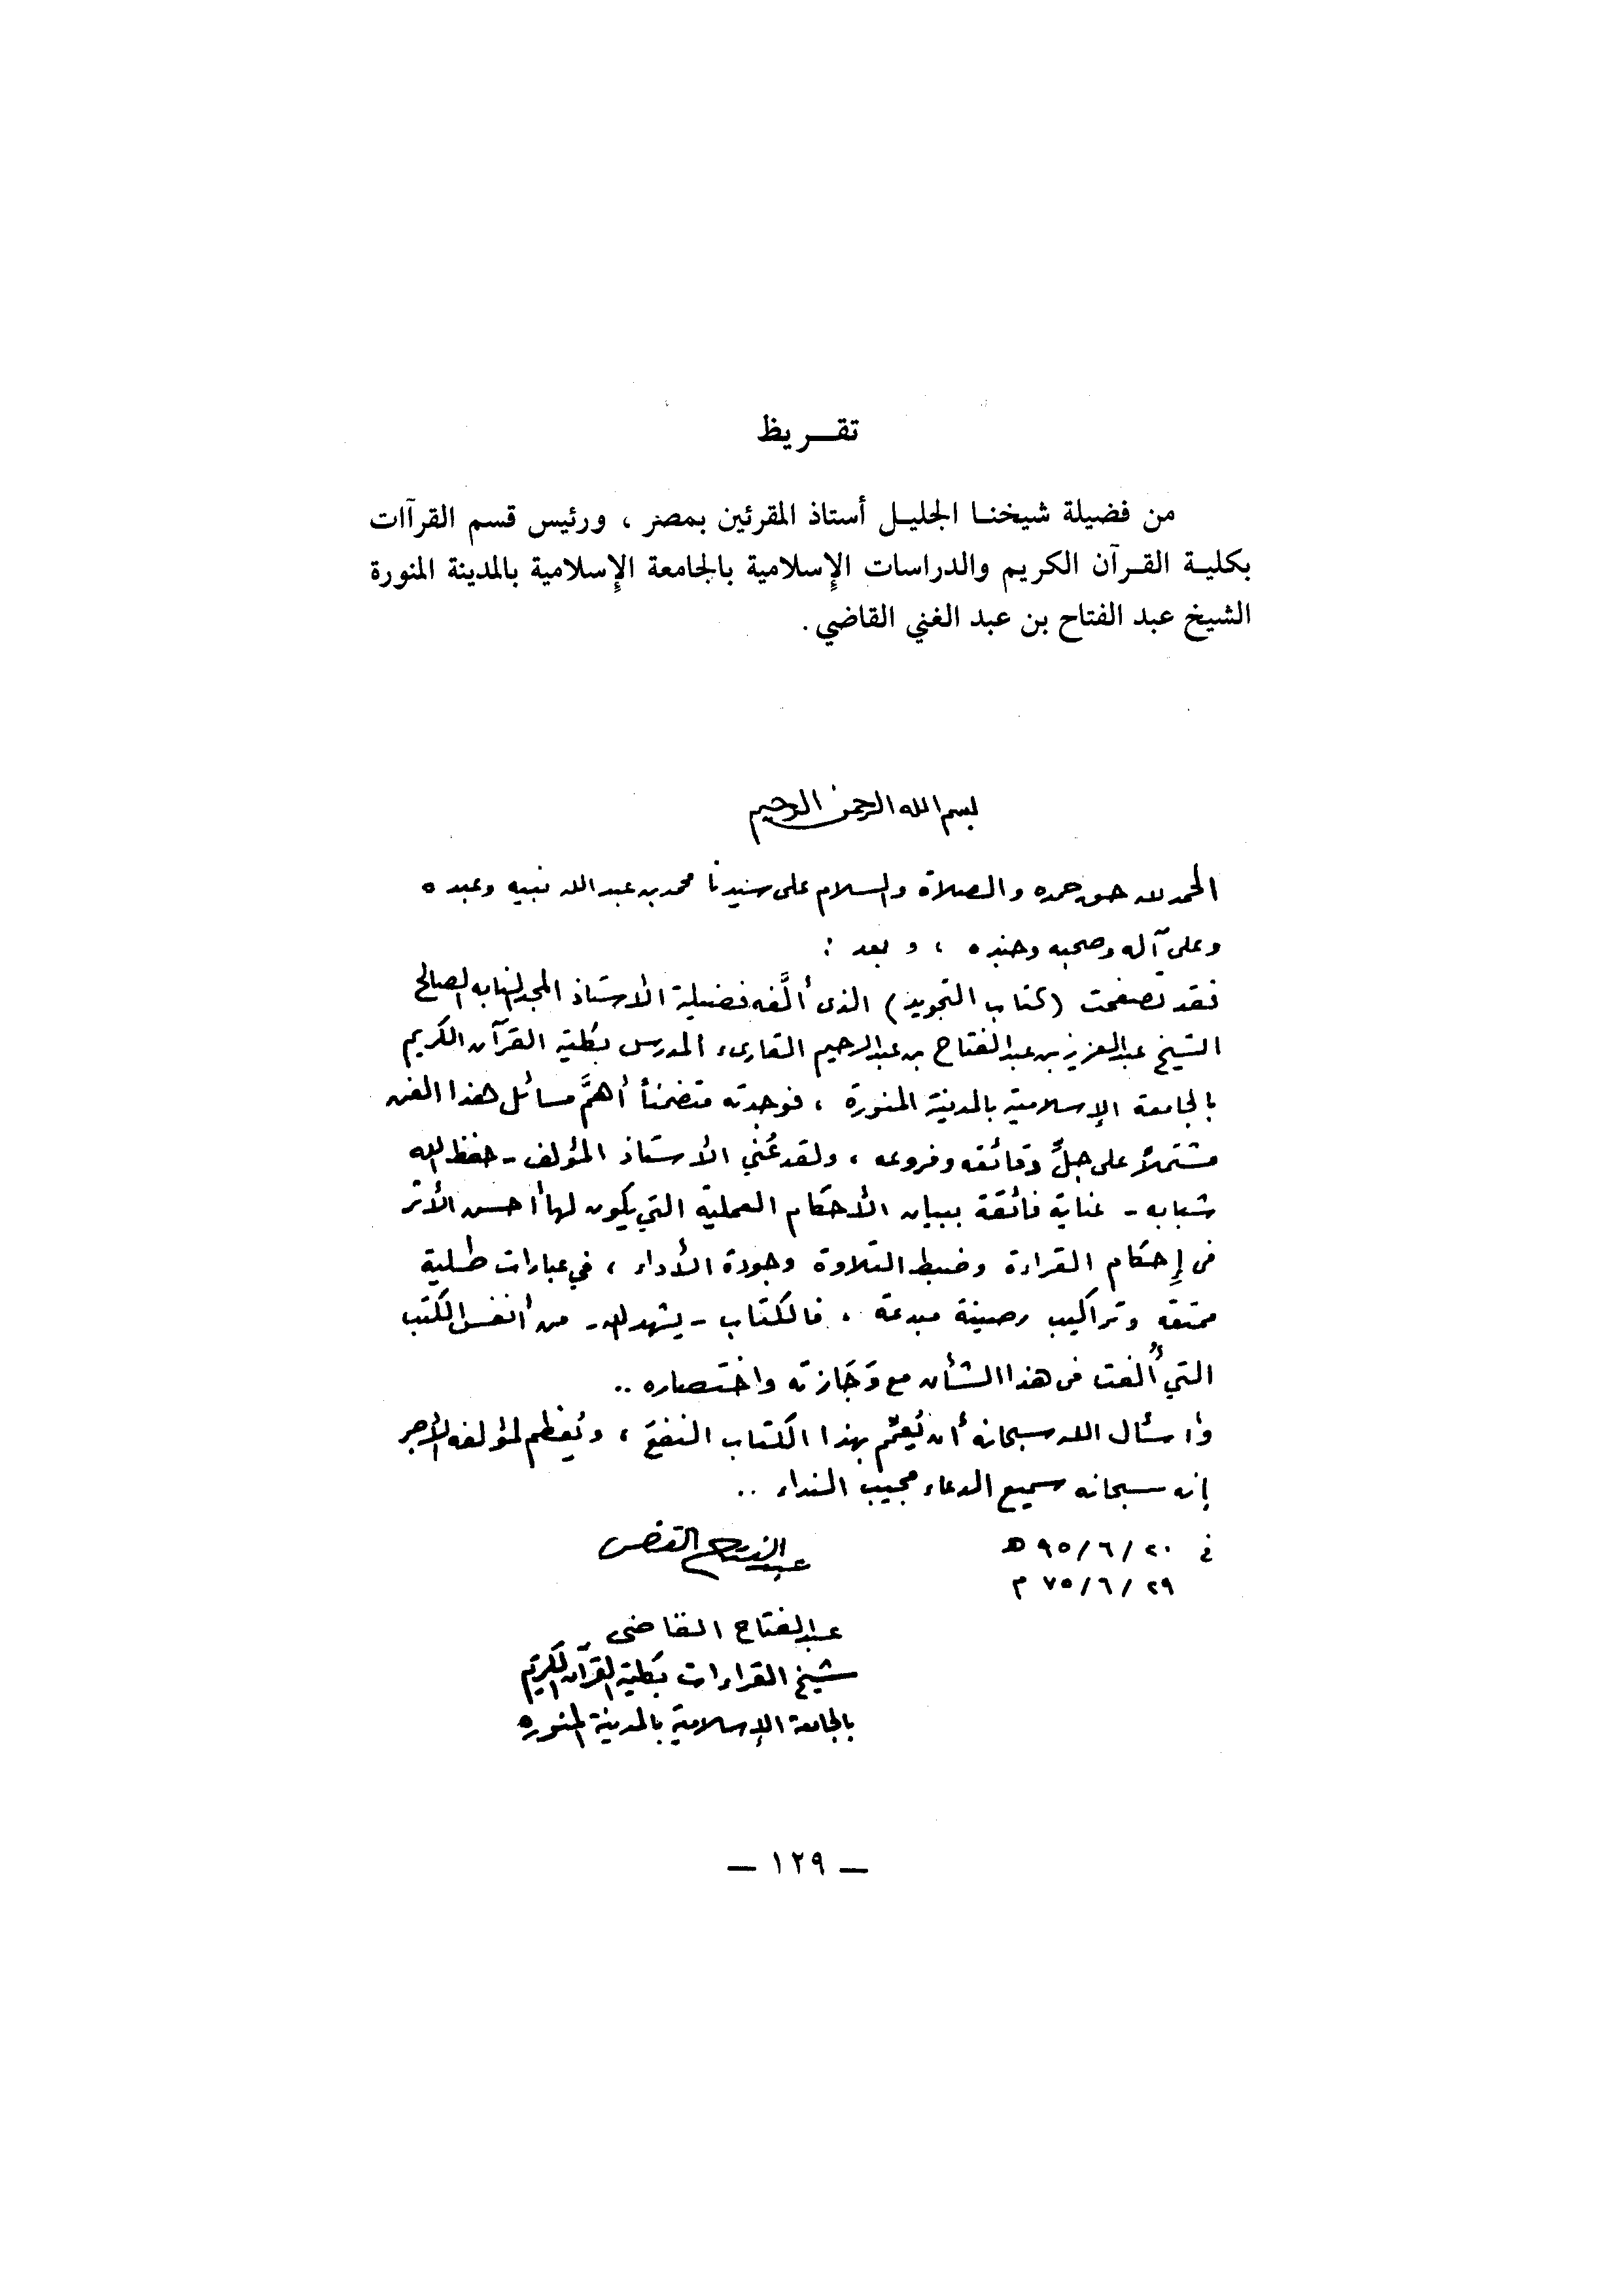 تقـــريظ
من فضيلة شيخنـا الجليـل أستاذ المقرئين بمصر ، ورئيس قسم القرآات
بكليـة القـرآن الكريم والدراسات الإسلامية بالجامعة الإسلامية بالمدينة المنورة
الشيخ عبد الفتاح بن عبد الغني القاضي .
بسم الله الرحمن الرحيم
الحمد لله حق حمده والصلاة والسلام على سيدنا محمد بن عبد الله نبيه وعبده
وعلى آله وصحبه وجنده ، وبعد :
فقد تصفحت (كتاب التجويد) الذى ألَّفه فضيلة الأستاذ المجد النابه الصالح
الشيخ عبد العزيز بن عبد الفتاح بن عبد الرحيم القارىء المدرس بكلية القرآن الكريم
بالجامعة الإسلامية بالمدينة المنورة ، فوجدته متضمناً أهمَّ مسائل هذا الفن
مشتملاً على جلِّ دقائقه وفروعه ، ولقد عُني الأستاذ المؤلف - حفظ الله
شبابه - عناية فائقة ببيان الأحكام العملية التي يكون لها أحسن الأثر
فى إِحكام القراءة وضبط التلاوة وجودة الأداء ، في عبارات طلية
ممتعة وتراكيب رصينة مبدعة ، فالكتاب - يشهد الله - من أنفس الكتب
التي أُلفت فى هذا الشأن مع وَجَازته واختصاره ..
وأسأل الله سبحانه أن يُعمِّم بهذا الكتاب النفعَ ، ويُعظم لمؤلفه الأجر
إنه سبحانه سميع الدعاء مجيب النداء ..
في ٢٠/٦/٩٥ هـ
٢٩/٦/٧٥ م
عبد الفتاح القاضى
عبد الفتاح القاضى
شيخ القراءات بكلية القرآن الكريم
بالجامعة الإسلامية بالمدينة المنوره
— ١٢٩ —